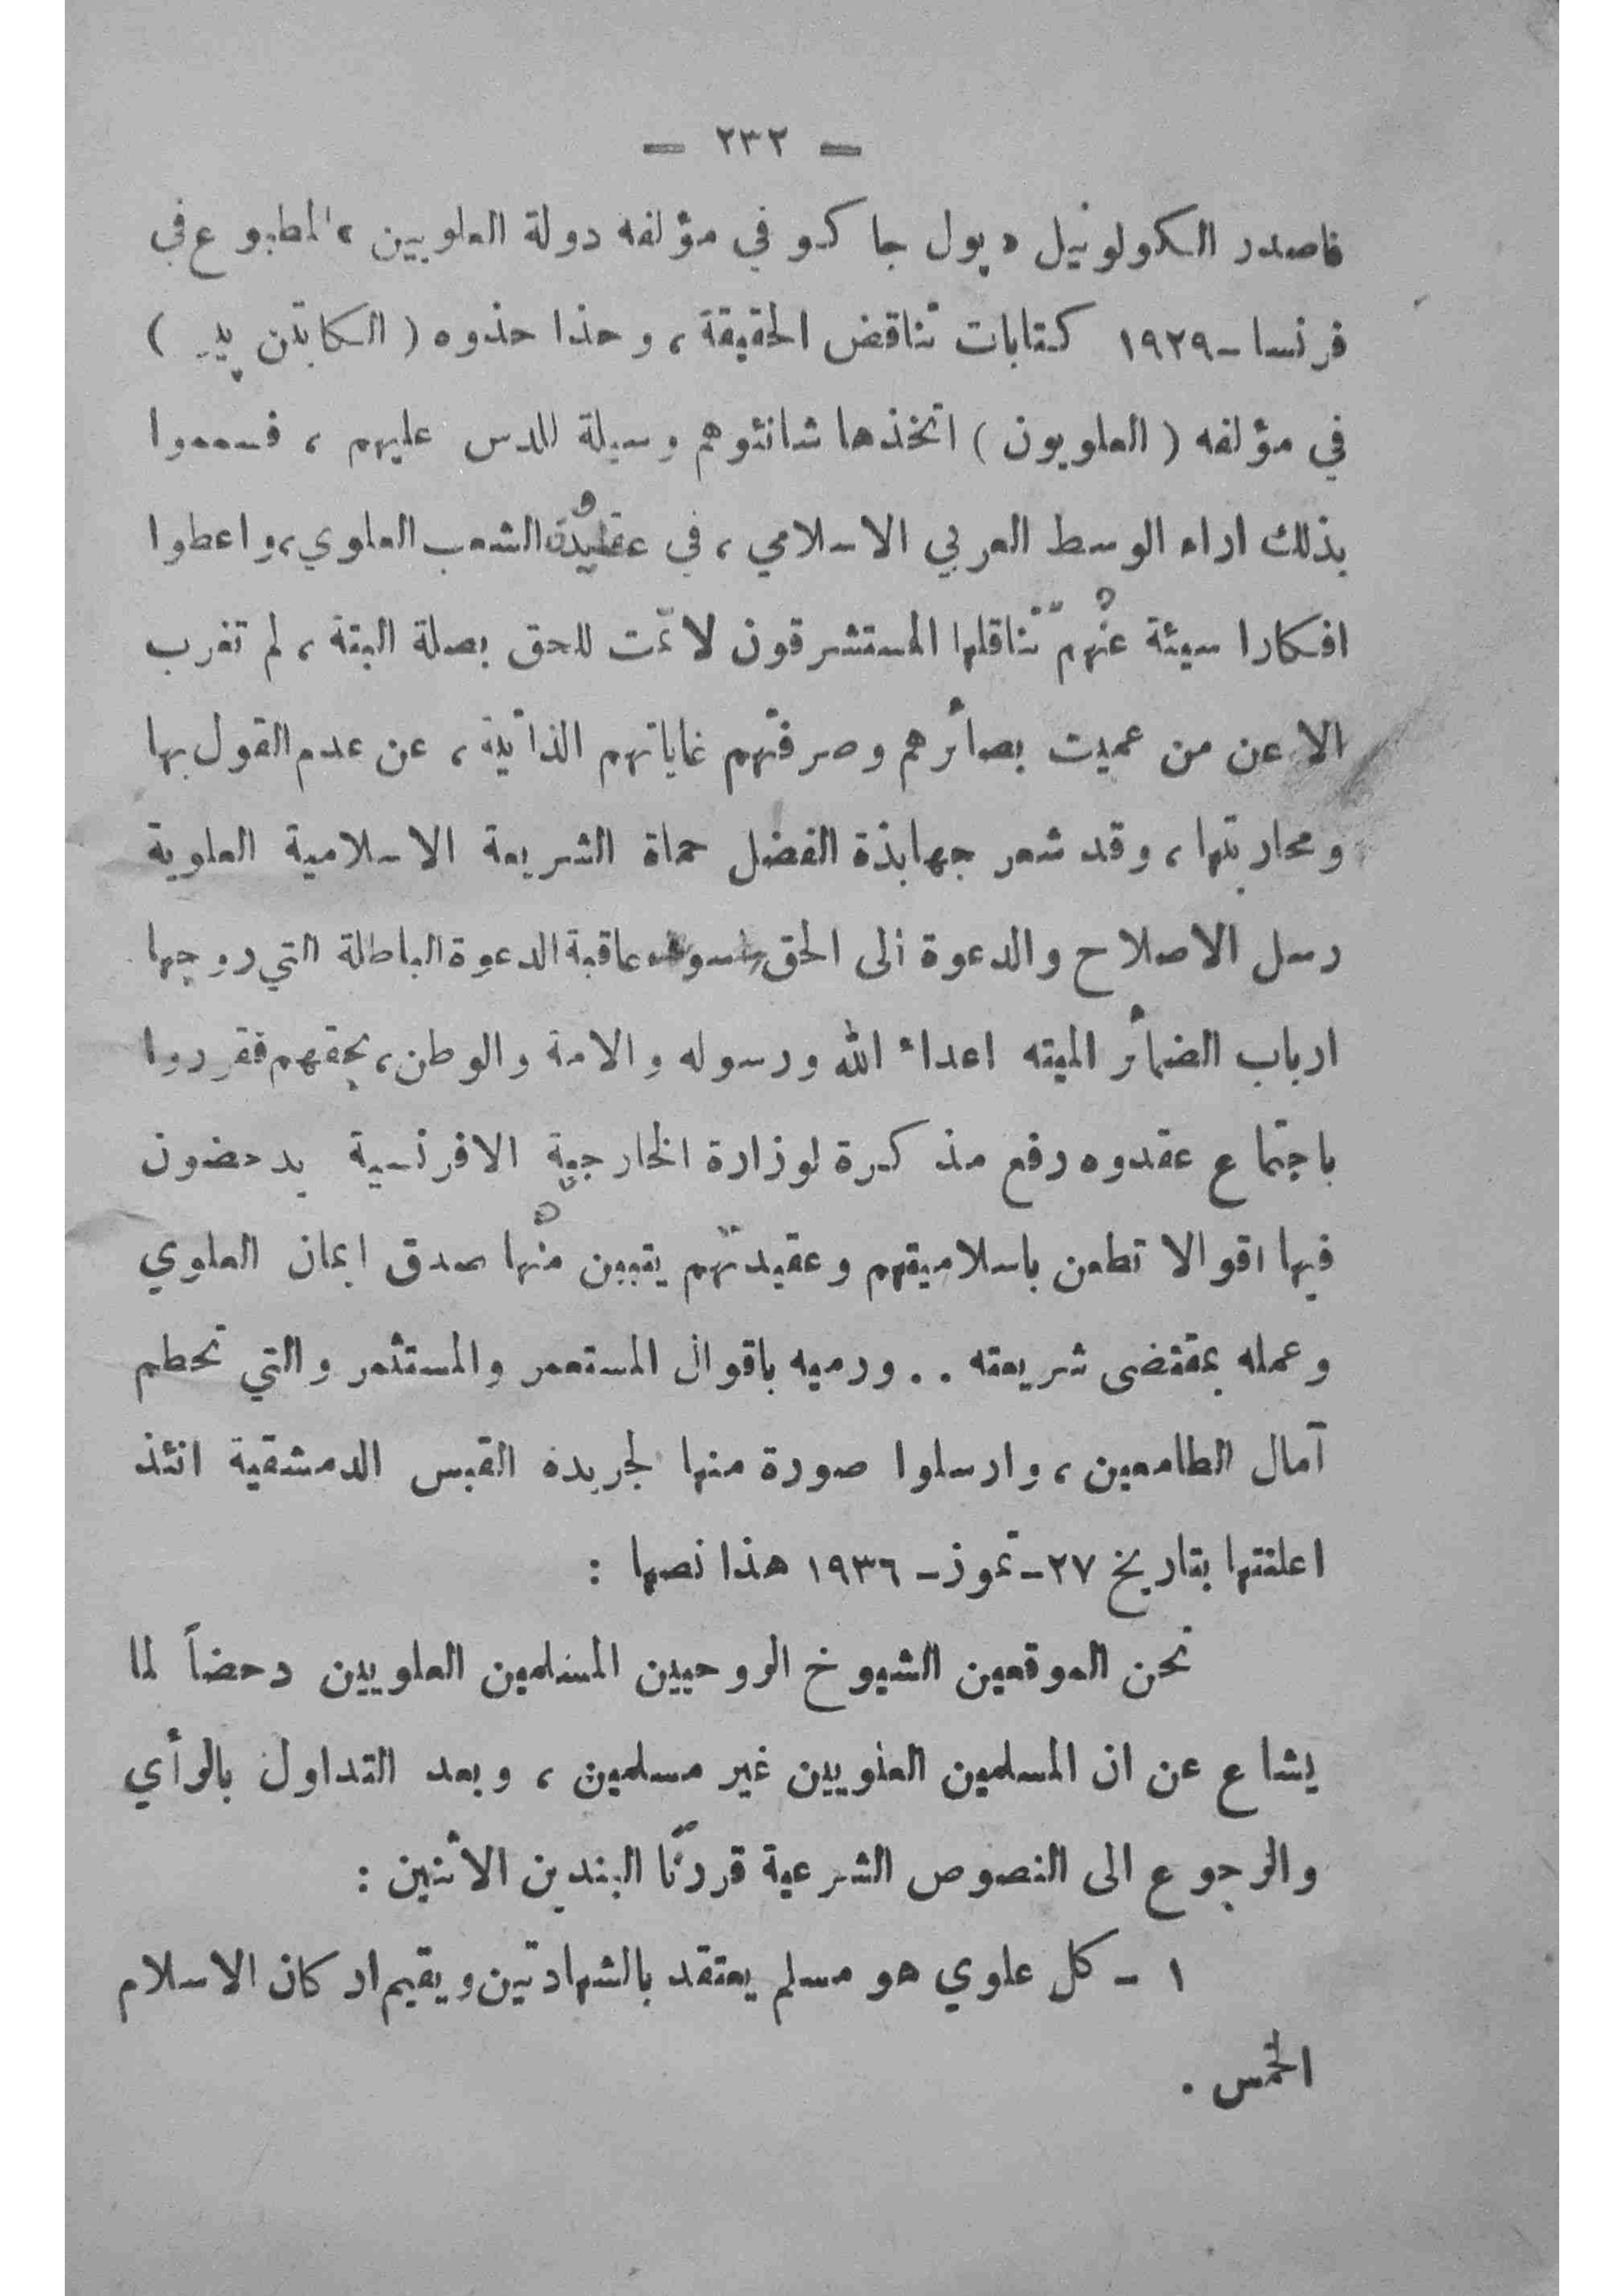 — ٢٣٢ —
فاصدر الكولونيل « پول جا كو في مؤلفه دولة العلويين » المطبوع في
فرنسا - ١٩٢٩ كتابات تناقض الحقيقة ، وحذا حذوه ( الكابتن )
في مؤلفه ( العلويون ) اتخذها شانئوهم وسيلة للدس عليهم ، فسمموا
بذلك اراء الوسط العربي الاسلامي ، في عقيدة الشعب العلوي ، واعطوا
افكارا سيئة عنهم تناقلها المستشرقون لا تمت للحق بصلة البتة ، لم تغرب
الا عن من عميت بصائرهم وصرفتهم غاياتهم الذاتية ، عن عدم القول بها
ومحاربتها ، وقد شعر جهابذة الفضل حماة الشريعة الاسلامية العلوية
رسل الاصلاح والدعوة الى الحق عاقبة الدعوة الباطلة التي روجها
ارباب الضمائر الميته اعداء الله ورسوله والامة والوطن ، بحقهم فقرروا
باجتماع عقدوه رفع مذكرة لوزارة الخارجية الافرنسية يدحضون
فيها اقوالا تطعن باسلاميتهم وعقيدتهم يتبين منها صدق ايمان العلوي
وعمله بمقتضى شريعته . . ورميه باقوال المستعمر والمستثمر والتي تحطم
آمال الطامعين ، وارسلوا صورة منها لجريده القبس الدمشقية انئذ
اعلنتها بتاريخ ٢٧ - تموز - ١٩٣٦ هذا نصها :
نحن الموقعين الشيوخ الروحيين المسلمين العلويين دحضاً لما
يشاع عن ان المسلمين العلويين غير مسلمين ، وبعد التداول بالرأي
والرجوع الى النصوص الشرعية قررنا البندين الاثنين :
١ - كل علوي هو مسلم يعتقد بالشهادتين ويقيم اركان الاسلام
الخمس .